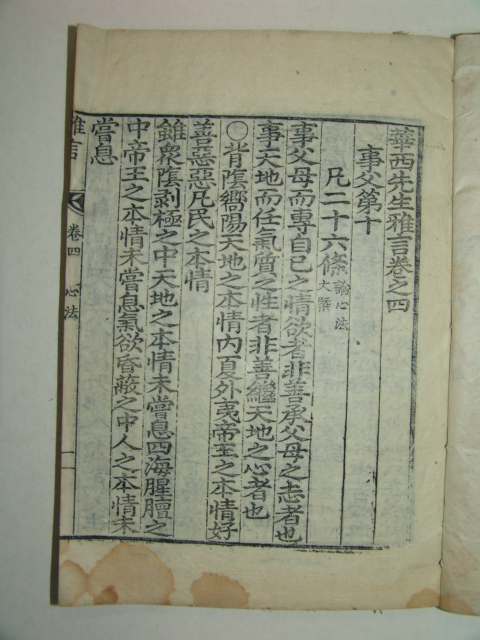 華西先生雅言卷之四
事父第十
凡二十六條 論心法大槩
事父母而專自已之情欲者非善承父母之志者也
事天地而任氣質之性者非善繼天地之心者也
○背陰嚮陽天地之本情內夏外夷帝王之本情好
善惡惡凡民之本情
雖衆陰剥極之中天地之本情未嘗息四海腥膻之
中帝王之本情未嘗息氣欲昏蔽之中人之本情未
嘗息
雅言 卷四 心法 一